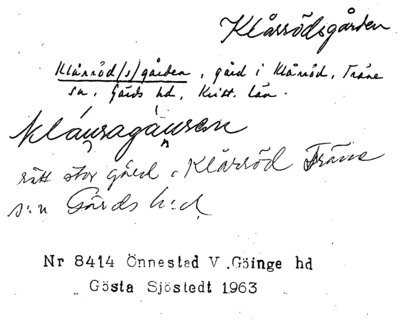 Klårrödsgården
Klårröd/s/gården, gård i Klårröd, Träne
sn, Gärds hd, Krist. län.
klåuragåuren
rätt stor gård i Klårröd Träne
s:n Gärds h:d
Nr 8414 Önnestad V.Göinge hd
Gösta Sjöstedt 1963